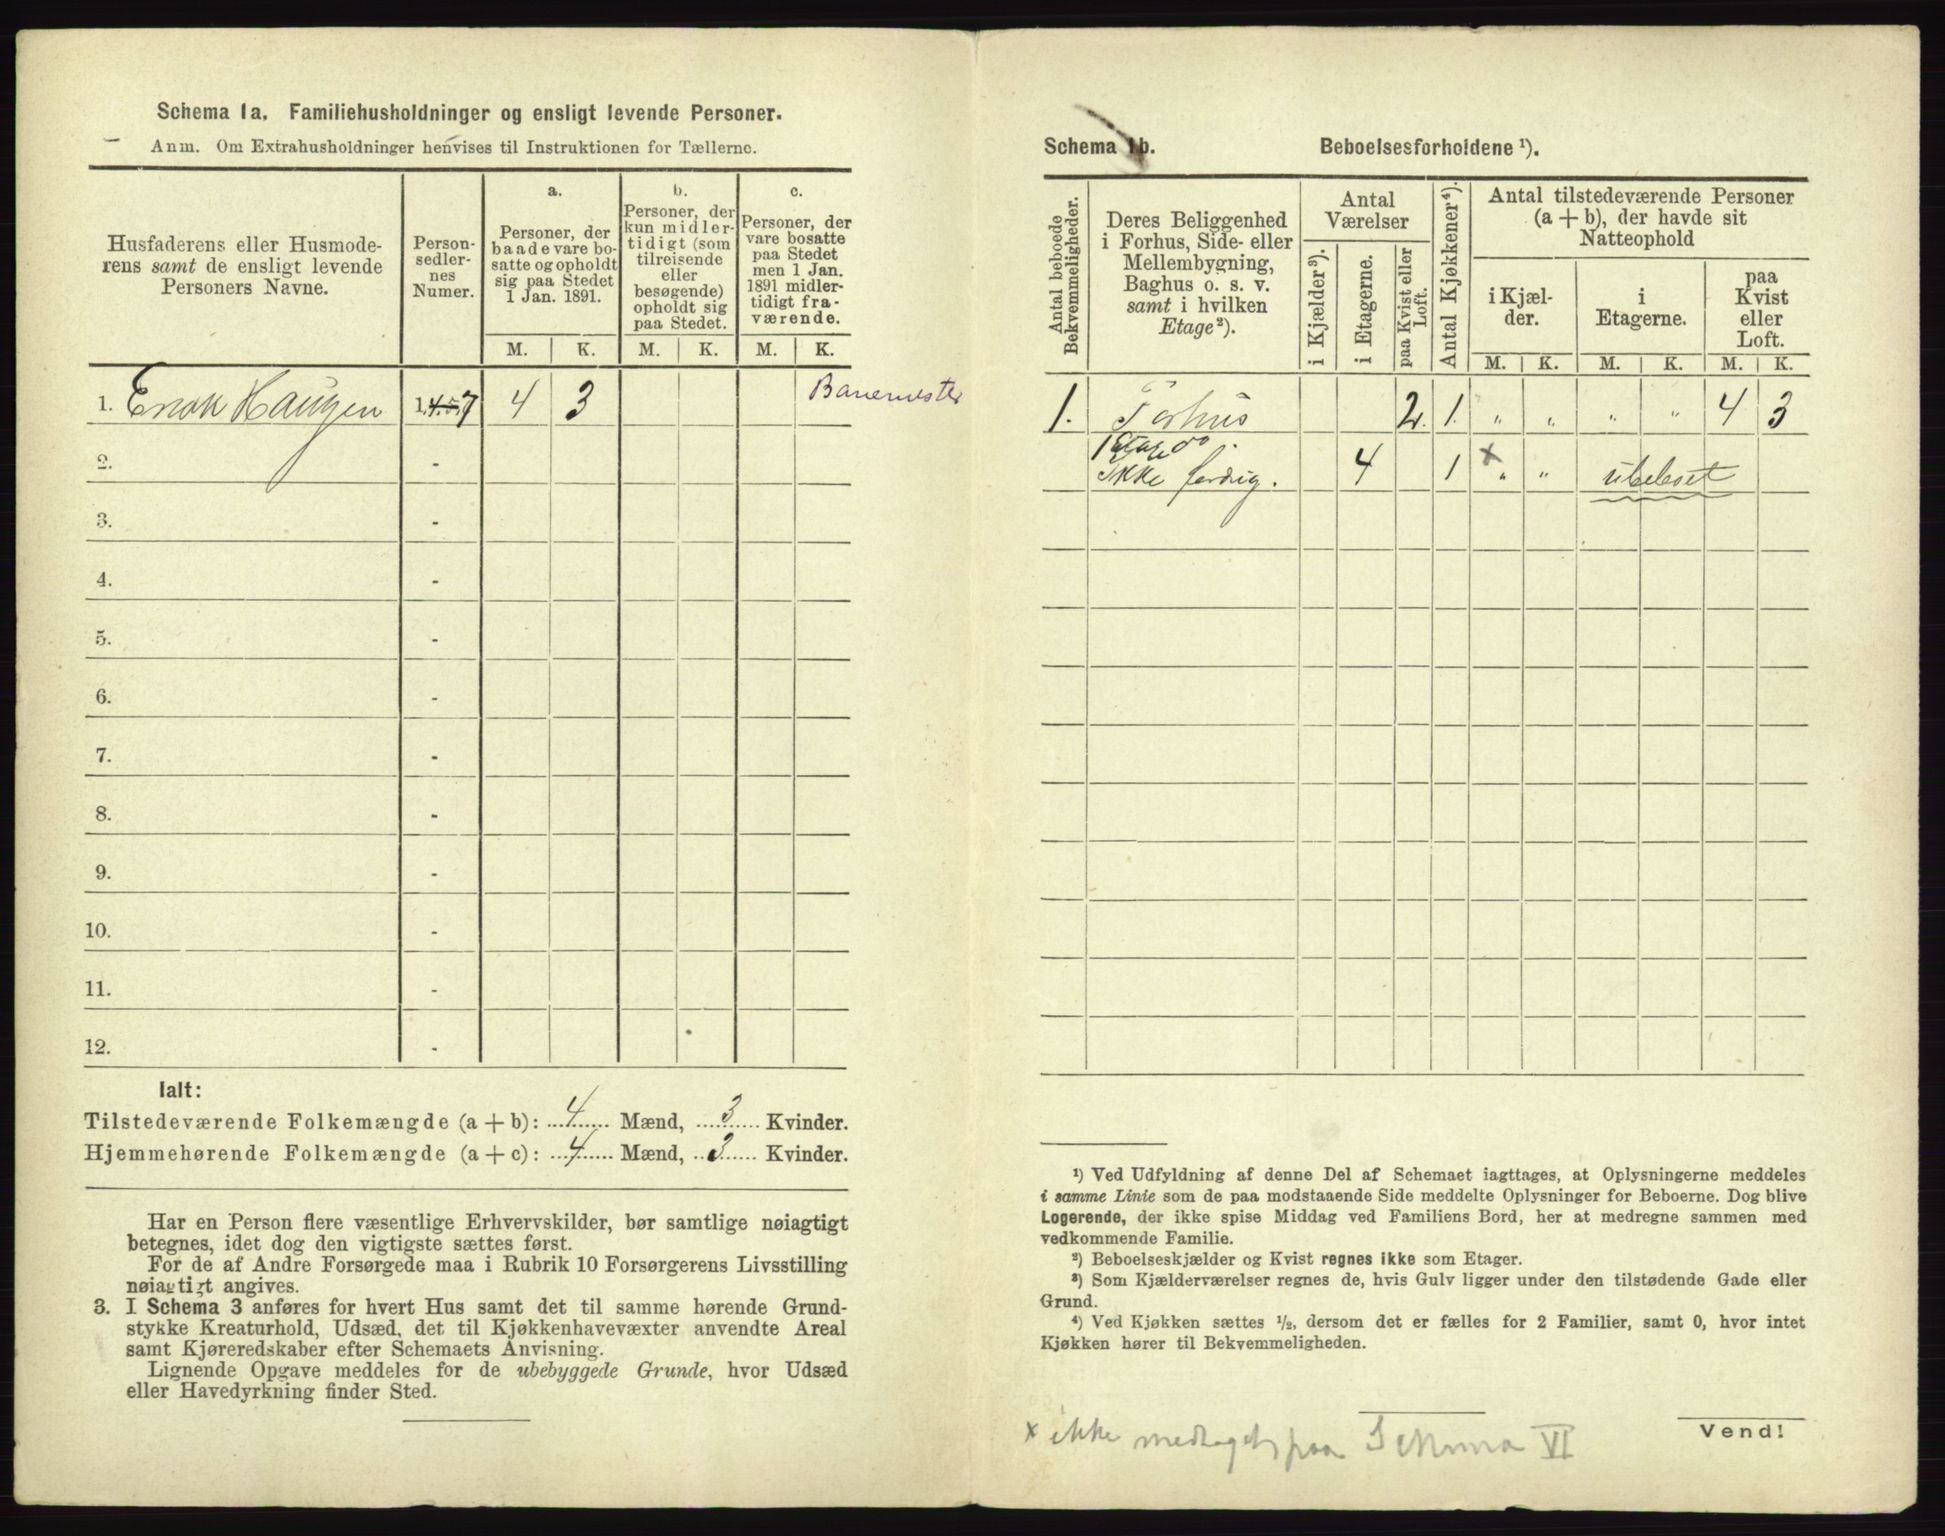 Schema 1a. Familiehusholdninger og ensligt levende Personer.
Anm. Om Extrahusholdninger henvises til Instruktionen for Tællerne.
Husfaderens eller Husmode-
rens samt de ensligt levende
Personers Navne.
Person-
sedler-
nes
Numer.
a.
Personer, der
baade vare bo-
satte og opholdt
sig paa Stedet
1 Jan. 1891.
b.
Personer, der
kun midler-
tidigt (som
tilreisende
eller
besøgende)
opholdt sig
paa Stedet.
c.
Personer, der
vare bosatte
paa Stedet
men 1 Jan.
1891 midler-
tidigt fra-
værende.
M. K. M. K. M. K.
1. Haugen 1 7 4 3 Banemester
2. -
3. -
4. -
5. -
6. -
7. -
8. -
9. -
10. -
11. -
12. -
Ialt:
Tilstedeværende Folkemængde (a + b): 4 Mænd, 3 Kvinder.
Hjemmehørende Folkemængde (a + c): 4 Mænd, 3 Kvinder.
Har en Person flere væsentlige Erhvervskilder, bør samtlige nøiagtigt
betegnes, idet dog den vigtigste sættes først.
For de af Andre Forsørgede maa i Rubrik 10 Forsørgerens Livsstilling
nøiagtigt angives.
3. I Schema 3 anføres for hvert Hus samt det til samme hørende Grund-
stykke Kreaturhold, Udsæd, det til Kjøkkenhavevæxter anvendte Areal
samt Kjøreredskaber efter Schemaets Anvisning.
Lignende Opgave meddeles for de ubebyggede Grunde, hvor Udsæd
eller Havedyrkning finder Sted.
Schema 1b. Beboelsesforholdene ¹).
Antal beboede
Bekvemmeligheder.
Deres Beliggenhed
i Forhus, Side- eller
Mellembygning,
Baghus o. s. v.
samt i hvilken
Etage²).
Antal
Værelser
i Kjælder³).
i Etagerne.
paa Kvist eller
Loft.
Antal Kjøkkener⁴).
Antal tilstedeværende Personer
(a + b), der havde sit
Natteophold
i Kjæl-
der.
i
Etagerne.
paa
Kvist
eller
Loft.
M. K. M. K. M. K.
1. Forhus 2. 1. " " " " 4 3
1 Etage do.
Ikke færdig. 4 1 x " " ubeboet
¹) Ved Udfyldning af denne Del af Schemaet iagttages, at Oplysningerne meddeles
i samme Linie som de paa modstaaende Side meddelte Oplysninger for Beboerne. Dog blive
Logerende, der ikke spise Middag ved Familiens Bord, her at medregne sammen med
vedkommende Familie.
²) Beboelseskjælder og Kvist regnes ikke som Etager.
³) Som Kjælderværelser regnes de, hvis Gulv ligger under den tilstødende Gade eller
Grund.
⁴) Ved Kjøkken sættes ½, dersom det er fælles for 2 Familier, samt 0, hvor intet
Kjøkken hører til Bekvemmeligheden.
Vend!
x ikke medtaget paa Schema VI